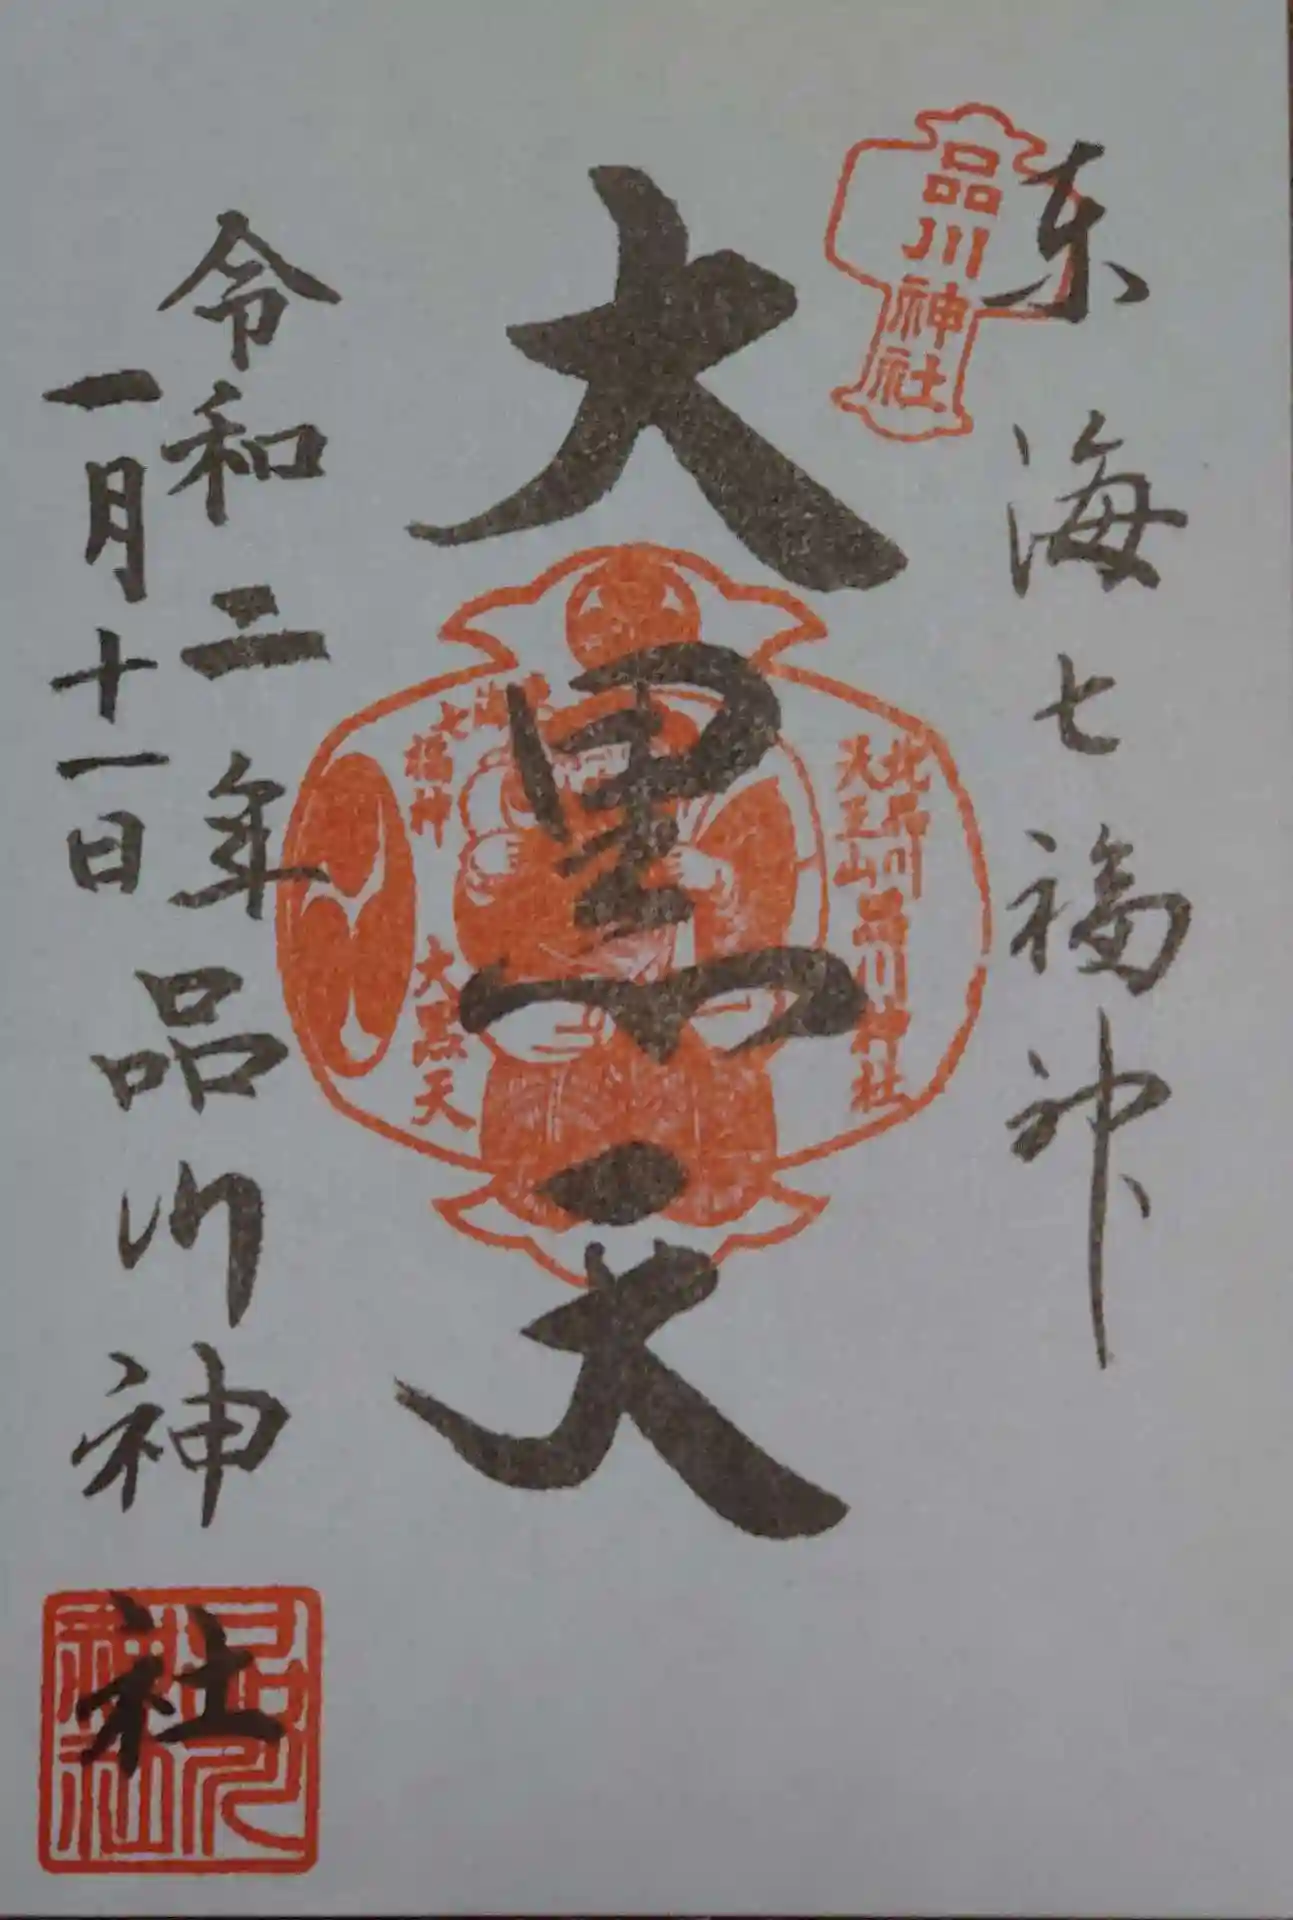 東海七福神
品川神社
大黒天
北品川
天王山
品川神社
東海
七福神
大黒天
令和二年
一月十一日
品川神社
品川
神社